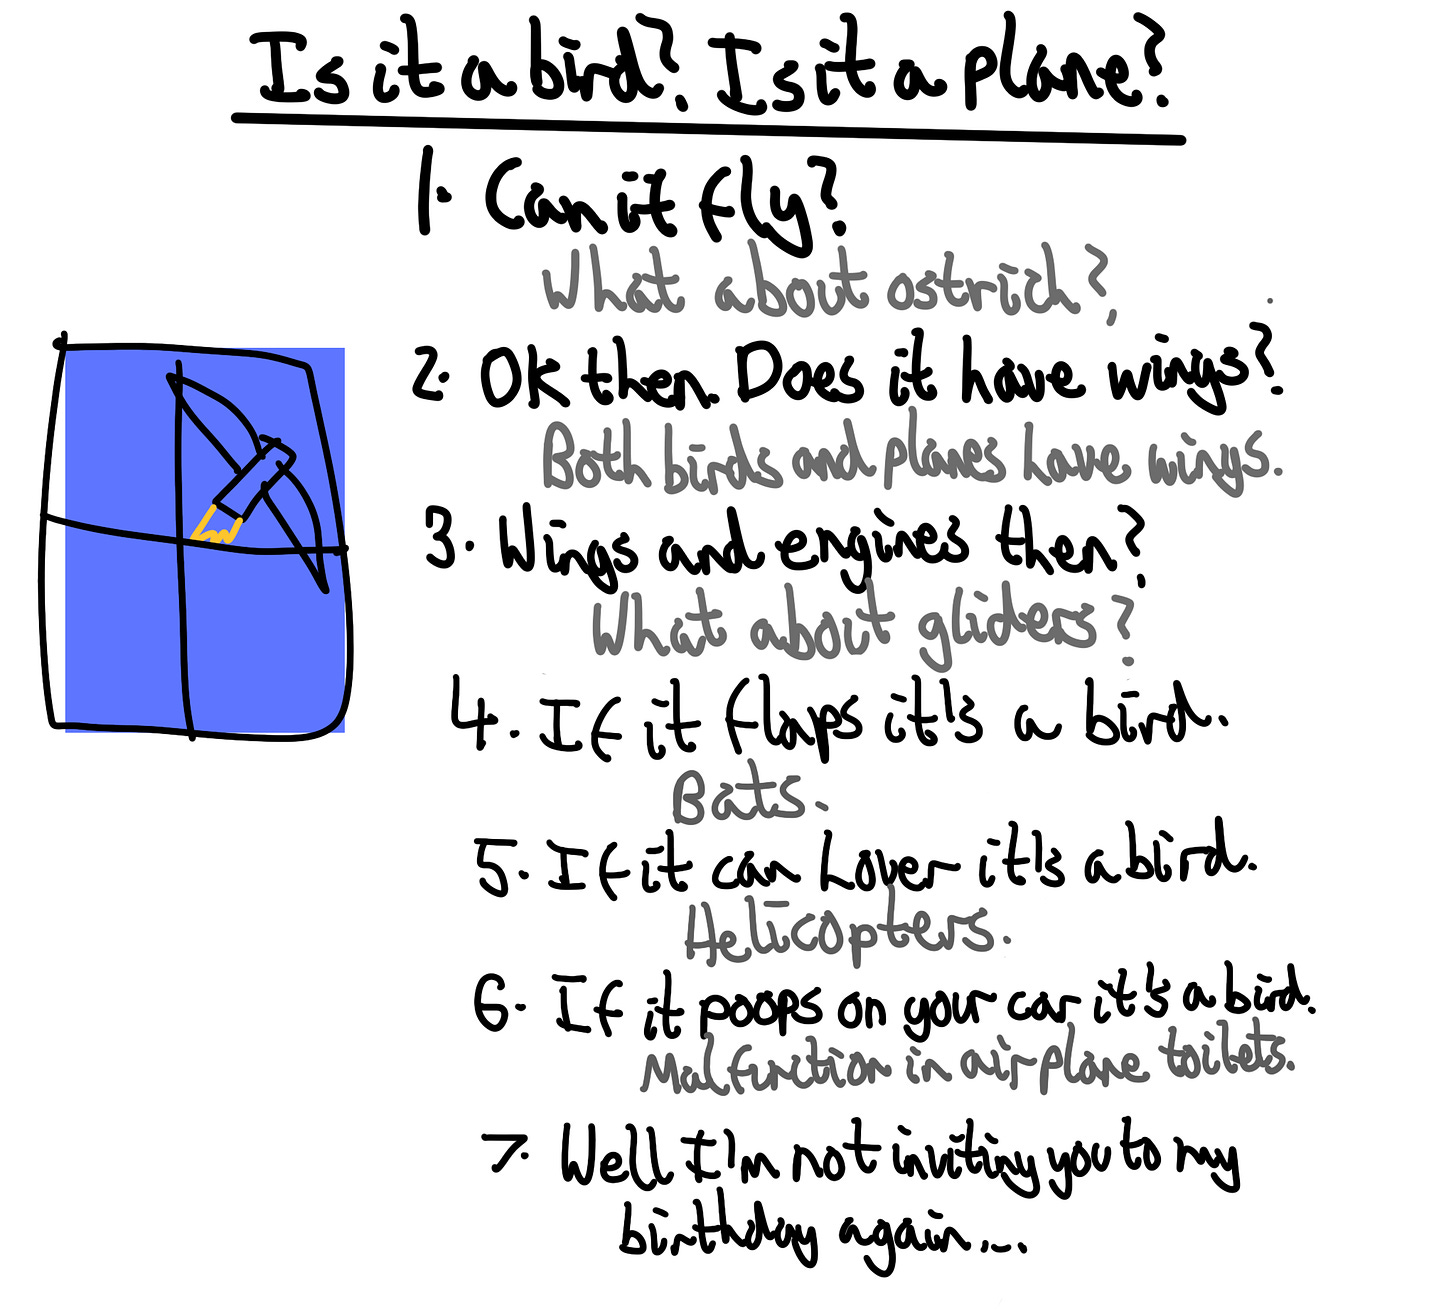 Is it a bird? Is it a plane?
1. Can it fly?
What about ostrich?
2. Ok then. Does it have wings?
Both birds and planes have wings.
3. Wings and engines then?
What about gliders?
4. If it flaps it's a bird.
Bats.
5. If it can hover it's a bird.
Helicopters.
6. If it poops on your car it's a bird.
Malfunction in airplane toilets.
7. Well I'm not inviting you to my
birthday again...